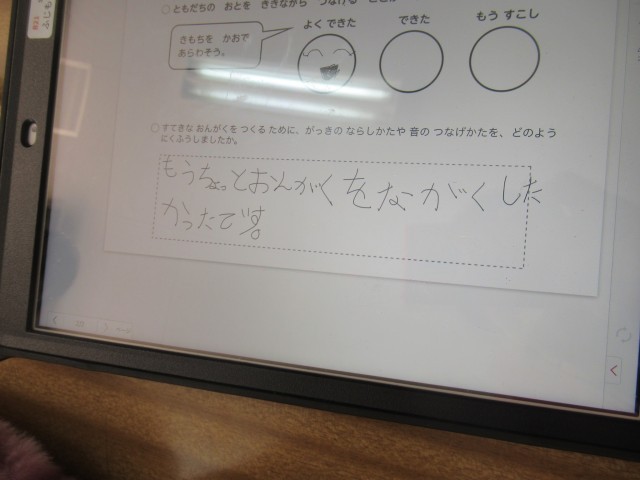 ○ ともだちの おとを ききながら つなげる
よく できた
できた
もう すこし
きもちを かおで
あらわそう。
○ すてきな おんがくを つくる ために、がっきの ならしかたや 音の つなげかたを、どのよう
にくふうしましたか。
もうちょっとおんがくをながくした
かったです。